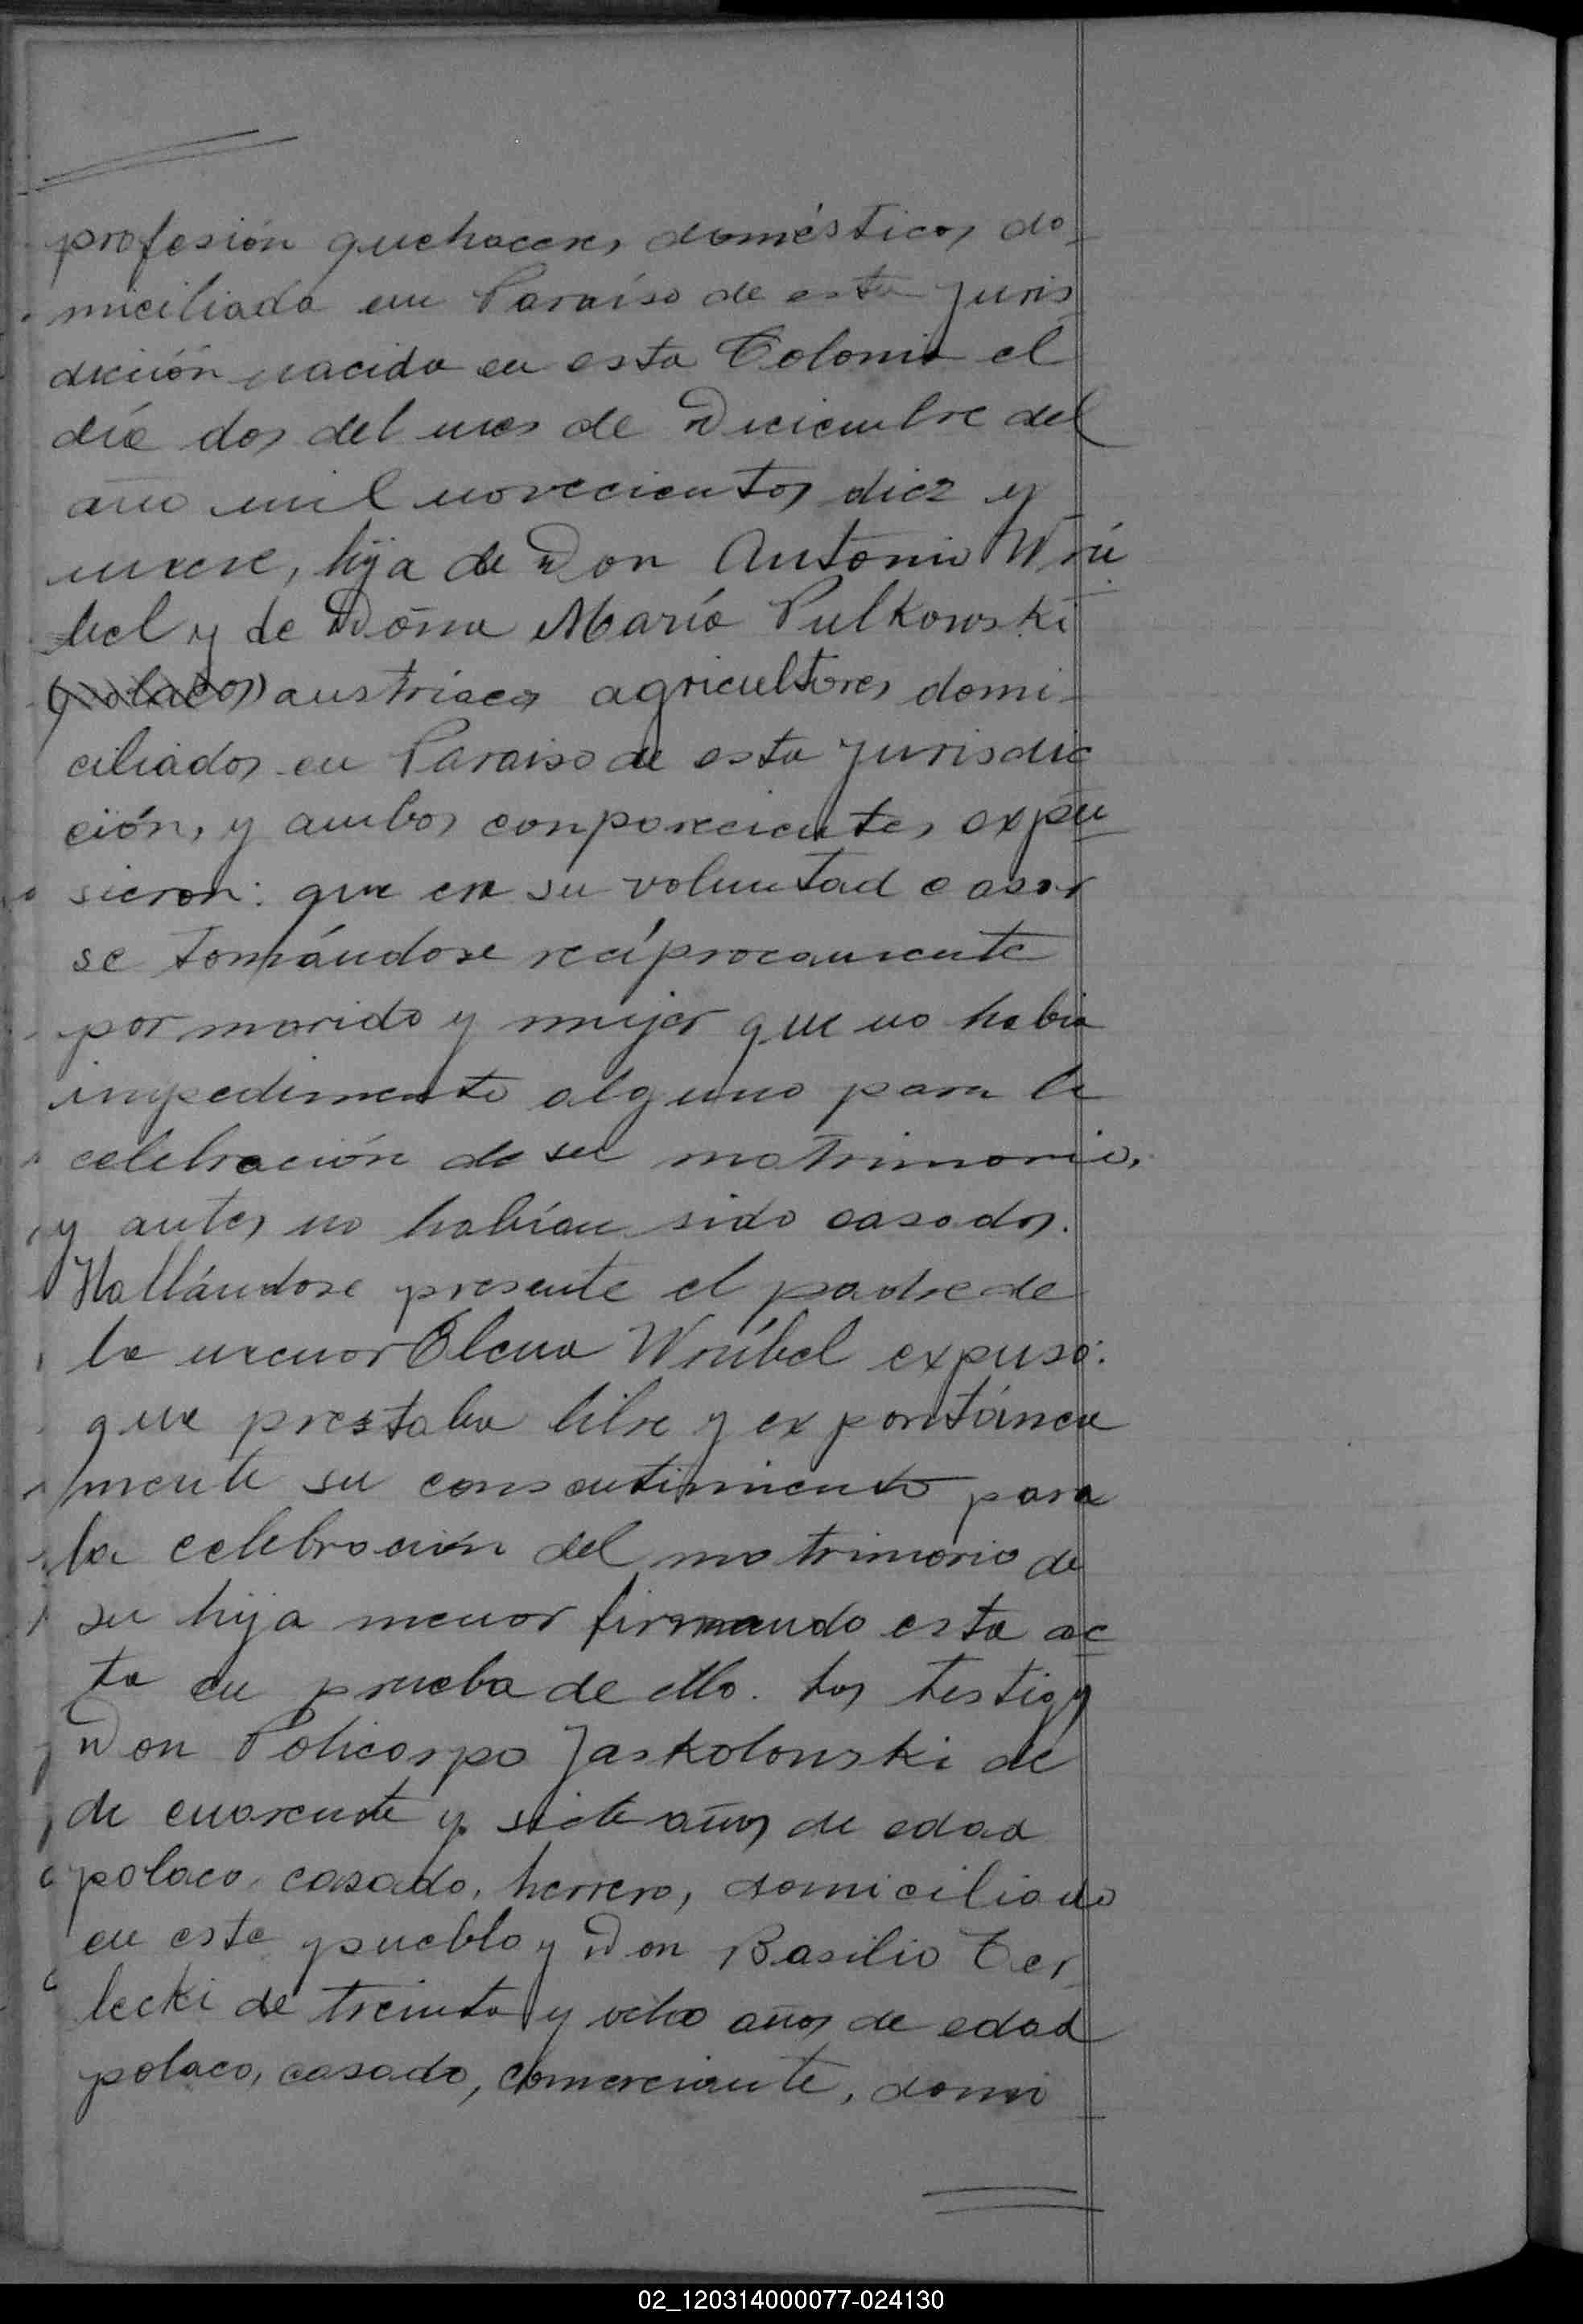 profesión quehaceres domésticos do-
miciliada en Paraíso de esta Juris
dicción nacida en esta Colonia el
día dos del mes de Diciembre del
año mil novecientos diez y
nueve, hija de Don Antonio Wrú
bel y de Doña María Pulkowski
(polacos) austríacos agricultores domi-
ciliados en Paraiso de esta Jurisdic
ción, y ambos conparecientes expu
sieron: que era su voluntad casar
se tomándose recíprocamente
por marido y mujer que no habia
impedimento alguno para la
celebración de su matrimonio,
y antes no habían sido casados.
Hallándose presente el padre de
la menor Elena Wrúbel expuso:
que prestaba libre y expontánea
mente su consentimiento para
la celebración del matrimonio de
su hija menor firmando esta ac
ta en prueba de ello. Los testigos
Don Policarpo Jaskolowski de
de cuarenta y siete años de edad
polaco casado, herrero, domiciliado
en este pueblo y Don Basilio Ter
lecki de treinta y ocho años de edad
polaco, casado, comerciante, domi
02_120314000077-024130